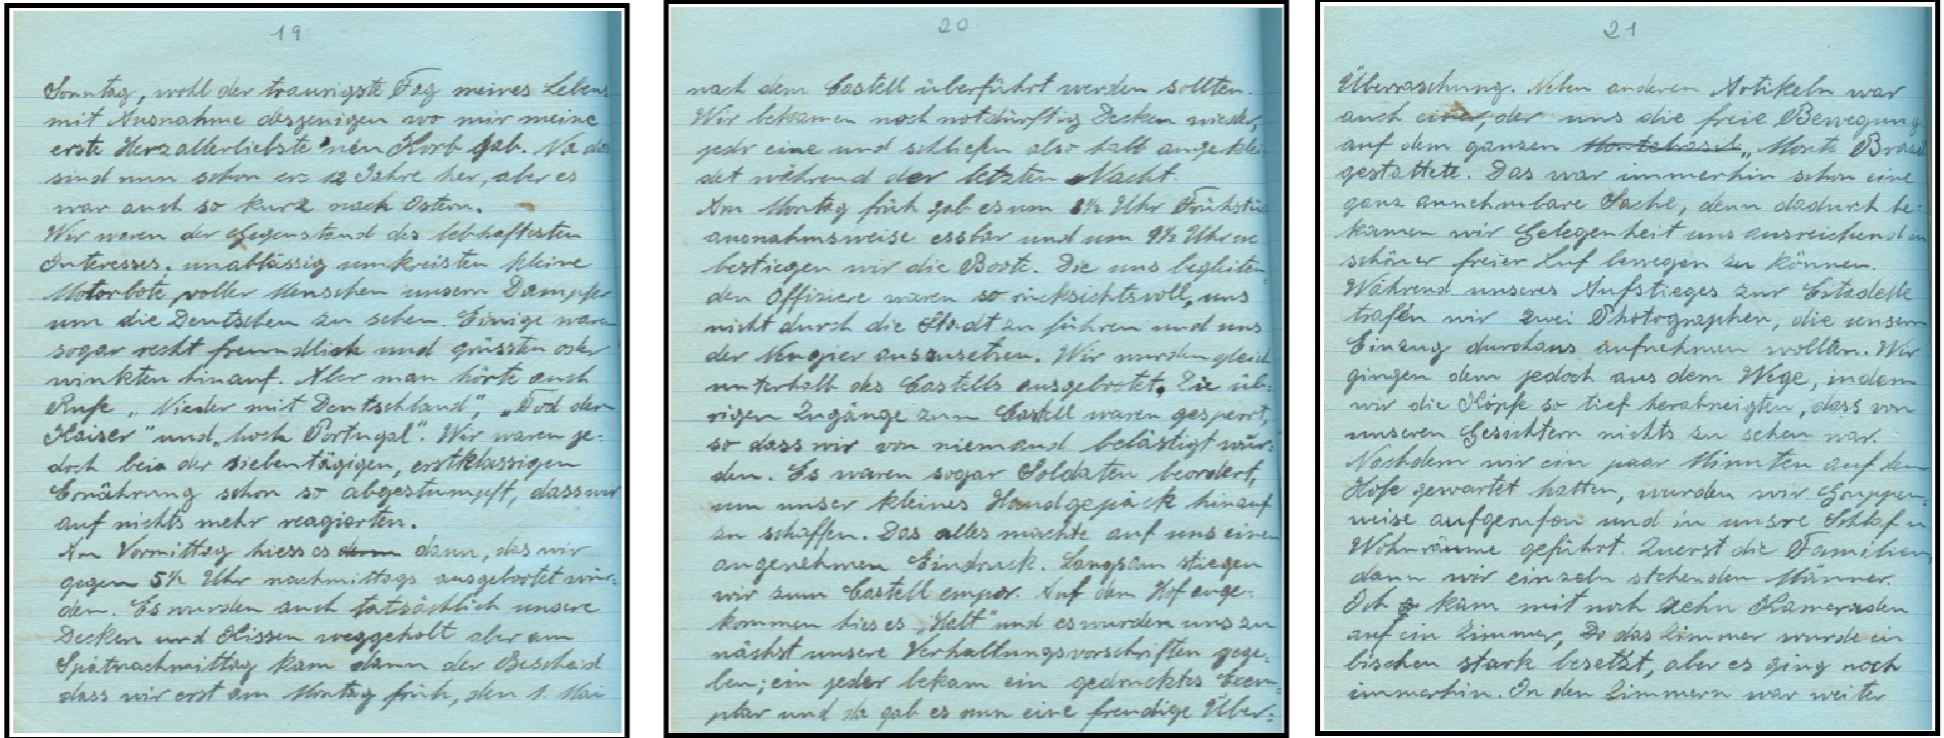 19
Sonntag, wohl der traurigste Tag meines Lebens
mit Ausnahme desjenigen wo mir meine
erste Herzallerliebste 'nen Korb gab. Na das
sind nun schon 12 Jahre her, aber es
war auch so kurz nach Ostern.
Wir waren der Gegenstand des lebhaftesten
Interesses, unablässig umkreisten kleine
Motorbote voller Menschen unsern Dampfer
um die Deutschen zu sehen. Einige waren
sogar recht freundlich und grüssten oder
winkten hinauf. Aber man hörte auch
Rufe „Nieder mit Deutschland", „Tod dem
Kaiser" und „hoch Portugal". Wir waren je-
doch bei der siebentägigen, erstklassigen
Ernährung schon so abgestumpft, dass wir
auf nichts mehr reagierten.
Am Vormittag hiess es dann, das wir
gegen 5½ Uhr nachmittags ausgebootet wür-
den. Es wurden auch tatsächlich unsere
Decken und Kissen weggeholt aber am
Spätnachmittag kam dann der Bescheid
dass wir erst am Montag früh, den 1. Mai
20
nach dem Castell überführt werden sollten.
Wir bekamen noch notdürftig Decken wieder,
jedr eine und schliefen also halb angeklei-
det während der letzten Nacht.
Am Montag früh gab es um 8½ Uhr Frühstück
ausnahmsweise essbar und um 9½ Uhr
bestiegen wir die Boote. Die uns begleiten-
den Offiziere waren so rücksichtsvoll, uns
nicht durch die Stadt zu führen und uns
der Neugier auszusetzen. Wir wurden gleich
unterhalb des Castells ausgebootet. Die üb-
rigen Zugänge zum Castell waren gesperrt,
so dass wir von niemand belästigt wür-
den. Es waren sogar Soldaten beordert,
um unser kleines Handgepäck hinauf
zu schaffen. Das alles machte auf uns einen
angenehmen Eindruck. Langsam stiegen
wir zum Castell empor. Auf dem Hof ange-
kommen hies es „Halt" und es wurden uns zu
nächst unsere Verhaltungsvorschriften gege-
ben; ein jeder bekam ein gedrucktes Exem-
plar und da gab es nun eine freudige Über-
21
Überraschung. Neben anderen Artikeln war
auch einer, der uns die freie Bewegung
auf dem ganzen Montebrasil „Monte Brasil
gestattete. Das war immerhin schon eine
ganz annehmbare Sache, denn dadurch be-
kamen wir Gelegenheit uns ausreichend in
schöner freier Luf bewegen zu können.
Während unseres Aufstieges zur Citadelle
trafen wir zwei Photographen, die unsern
Einzug durchaus aufnehmen wollten. Wir
gingen dem jedoch aus dem Wege, indem
wir die Köpfe so tief herabneigten, dass von
unseren Gesichtern nichts zu sehen war.
Nachdem wir ein paar Minuten auf dem
Hofe gewartet hatten, wurden wir Gruppen-
weise aufgerufen und in unsre Schlaf u
Wohnräume geführt. Zuerst die Familien,
dann wir einzeln stehenden Männer.
Ich kam mit noch zehn Kameraden
auf ein Zimmer, Do das Zimmer wurde ein
bischen stark besetzt, aber es ging noch
immerhin. In den Zimmern war weiter